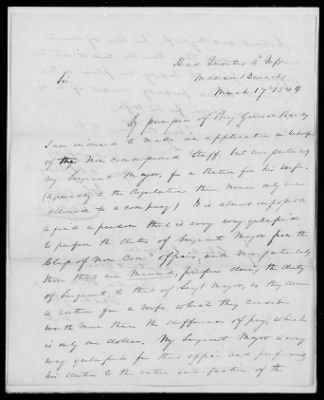 Head Quarters 2d Infy
Madison Barracks
March 17th 1849
Sir
By permission of Brig General Brady
I am induced to make an application in behalf
of the Non commissioned Staff, but more particularly
My Sergeant Major, for a Ration for his wife.
(Agreeably to the Regulations there none only are
allowed to a company) It is almost impossible
to find a person that is every way qualified
to perform the duties of Sergeant Major from the
Class of Non Com'd officers, and more particularly
those that are Married, prefer doing the duty
of Sergeant, to that of Sergt Major, as they draw
a ration for a wife which they consider
worth more than the difference of pay, which
is only one dollar. My Sergeant Major is every
way qualified for that office and performs
his duties to the entire satisfaction of the